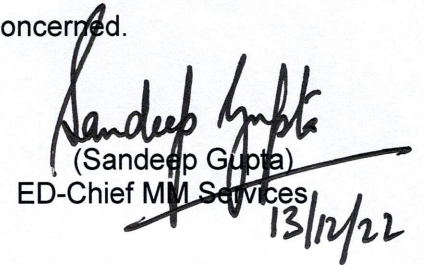 oncerned.
Sandeep Gupta
(Sandeep Gupta)
ED-Chief MM Services
13/12/22